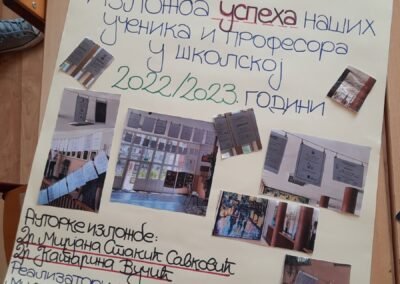 Изложба успеха наших
ученика и професора
у школској
2022/2023. години
Ауторке изложбе:
др Мирјана Стакић Савковић
др Катарина Вучић